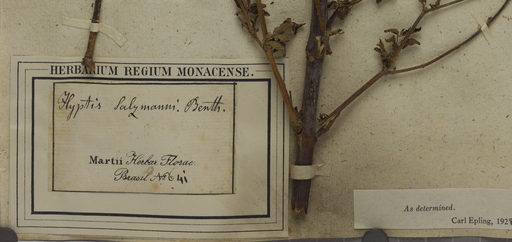 HERBARIUM REGIUM MONACENSE.
Hyptis Salzmanni. Benth.
Martii Herbar. Florae
Brasil. No. 641
As determined.
Carl Epling, 192